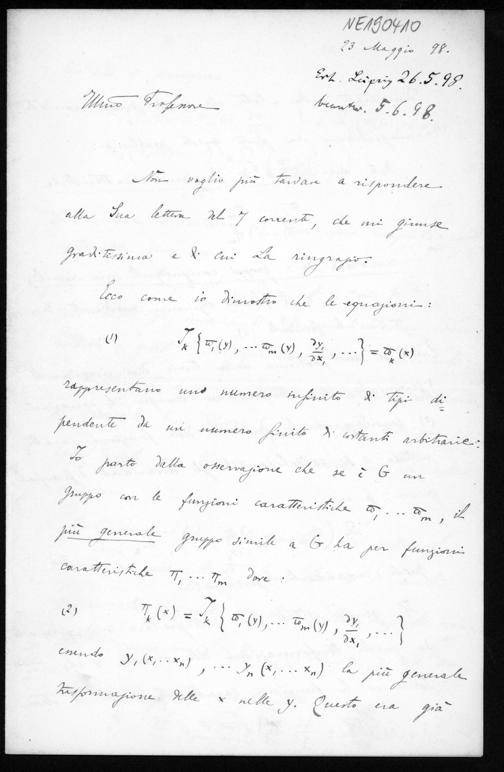 NE190410
23 Maggio 98.
Erh. Leipzig 26.5.98.
beantw. 5.6.98.
Illmo Professore
Non voglio più tardare a rispondere
alla Sua lettera del 7 corrente, che mi giunse
graditissima e di cui La ringrazio.
Ecco come io dimostro che le equazioni:
(1) J_k {ϖ_1(y), ... ϖ_m(y), ∂y_1/∂x_1, ...} = ϖ_k(x)
rappresentano uno numero infinito di tipi di=
pendente da un numero finito di costanti arbitrarie:
Io parto dalla osservazione che se è G un
gruppo con le funzioni caratteristiche ϖ_1 ... ϖ_m, il
più generale gruppo simile a G ha per funzioni
caratteristiche π_1 ... π_m dove:
(2) π_k(x) = J_k {ϖ_1(y), ... ϖ_m(y), ∂y_1/∂x_1, ...}
essendo y_1(x_1...x_n), ... y_n(x_1...x_n) la più generale
trasformazione delle x nelle y. Questo era già